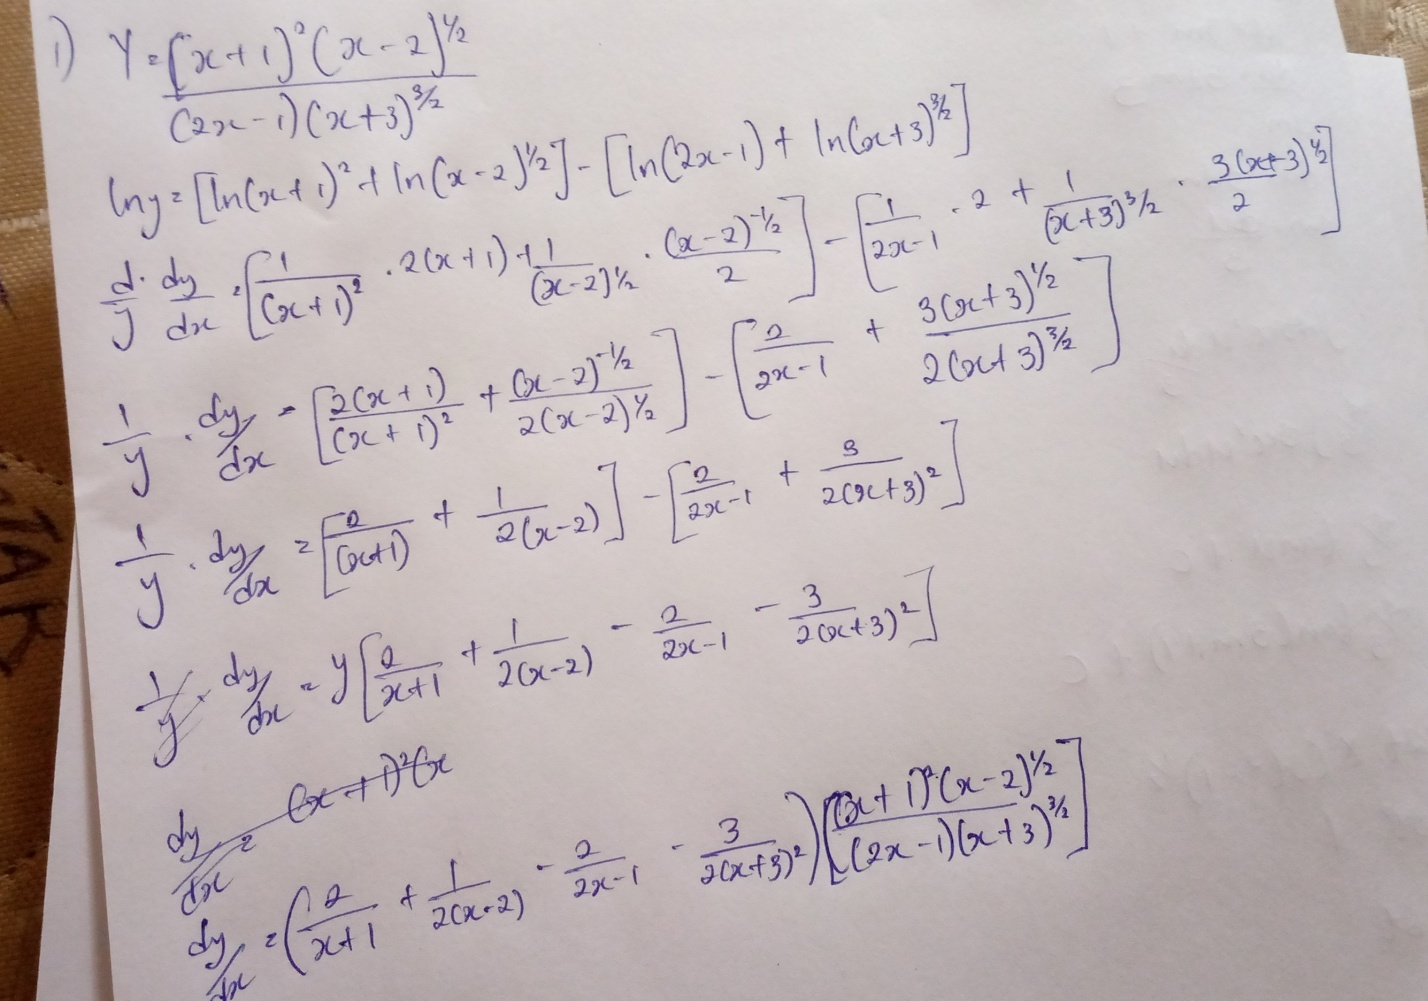 1) Y = (x+1)²(x-2)^½
(2x-1)(x+3)^3/2
lny = [ln(x+1)² + ln(x-2)^½] - [ln(2x-1) + ln(x+3)^3/2]
d/y · dy/dx = [1/(x+1)² · 2(x+1) + 1/(x-2)^½ · (x-2)^-½/2] - [1/2x-1 · 2 + 1/(x+3)^3/2 · 3(x+3)^½/2]
1/y · dy/dx = [2(x+1)/(x+1)² + (x-2)^-½/2(x-2)^½] - [2/2x-1 + 3(x+3)^½/2(x+3)^3/2]
1/y · dy/dx = [2/(x+1) + 1/2(x-2)] - [2/2x-1 + 3/2(x+3)²]
1/y · dy/dx = y[2/x+1 + 1/2(x-2) - 2/2x-1 - 3/2(x+3)²]
dy/dx = (x+1)²(x
dy/dx = (2/x+1 + 1/2(x-2) - 2/2x-1 - 3/2(x+3)²)[(x+1)²(x-2)^½/(2x-1)(x+3)^3/2]